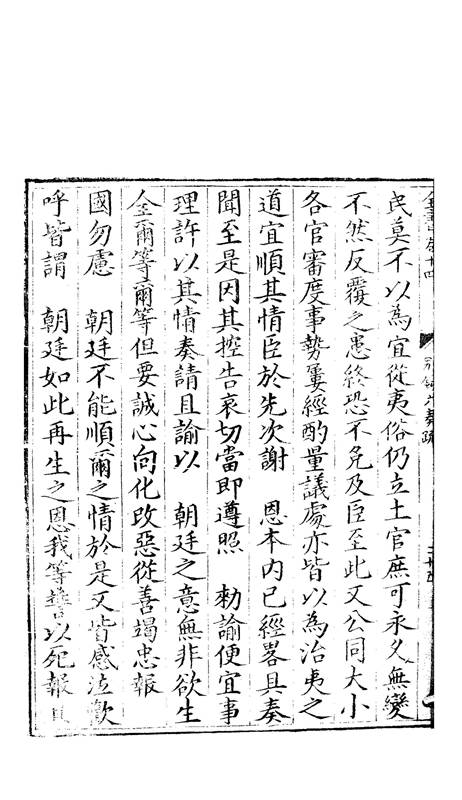 民莫不以為宜從夷俗仍立土官庶可永久無變
不然反覆之患終恐不免及臣至此又公同大小
各官審度事勢屢經酌量議處亦皆以為治夷之
道宜順其情臣於先次謝　恩本内已經畧具奏
聞至是因其控告哀切當即遵照　勑諭便宜事
理許以其情奏請且諭以　朝廷之意無非欲生
全爾等爾等但要誠心向化改惡從善竭忠報
國勿慮　朝廷不能順爾之情於是又皆感泣歡
呼皆謂　朝廷如此再生之恩我等誓以死報且